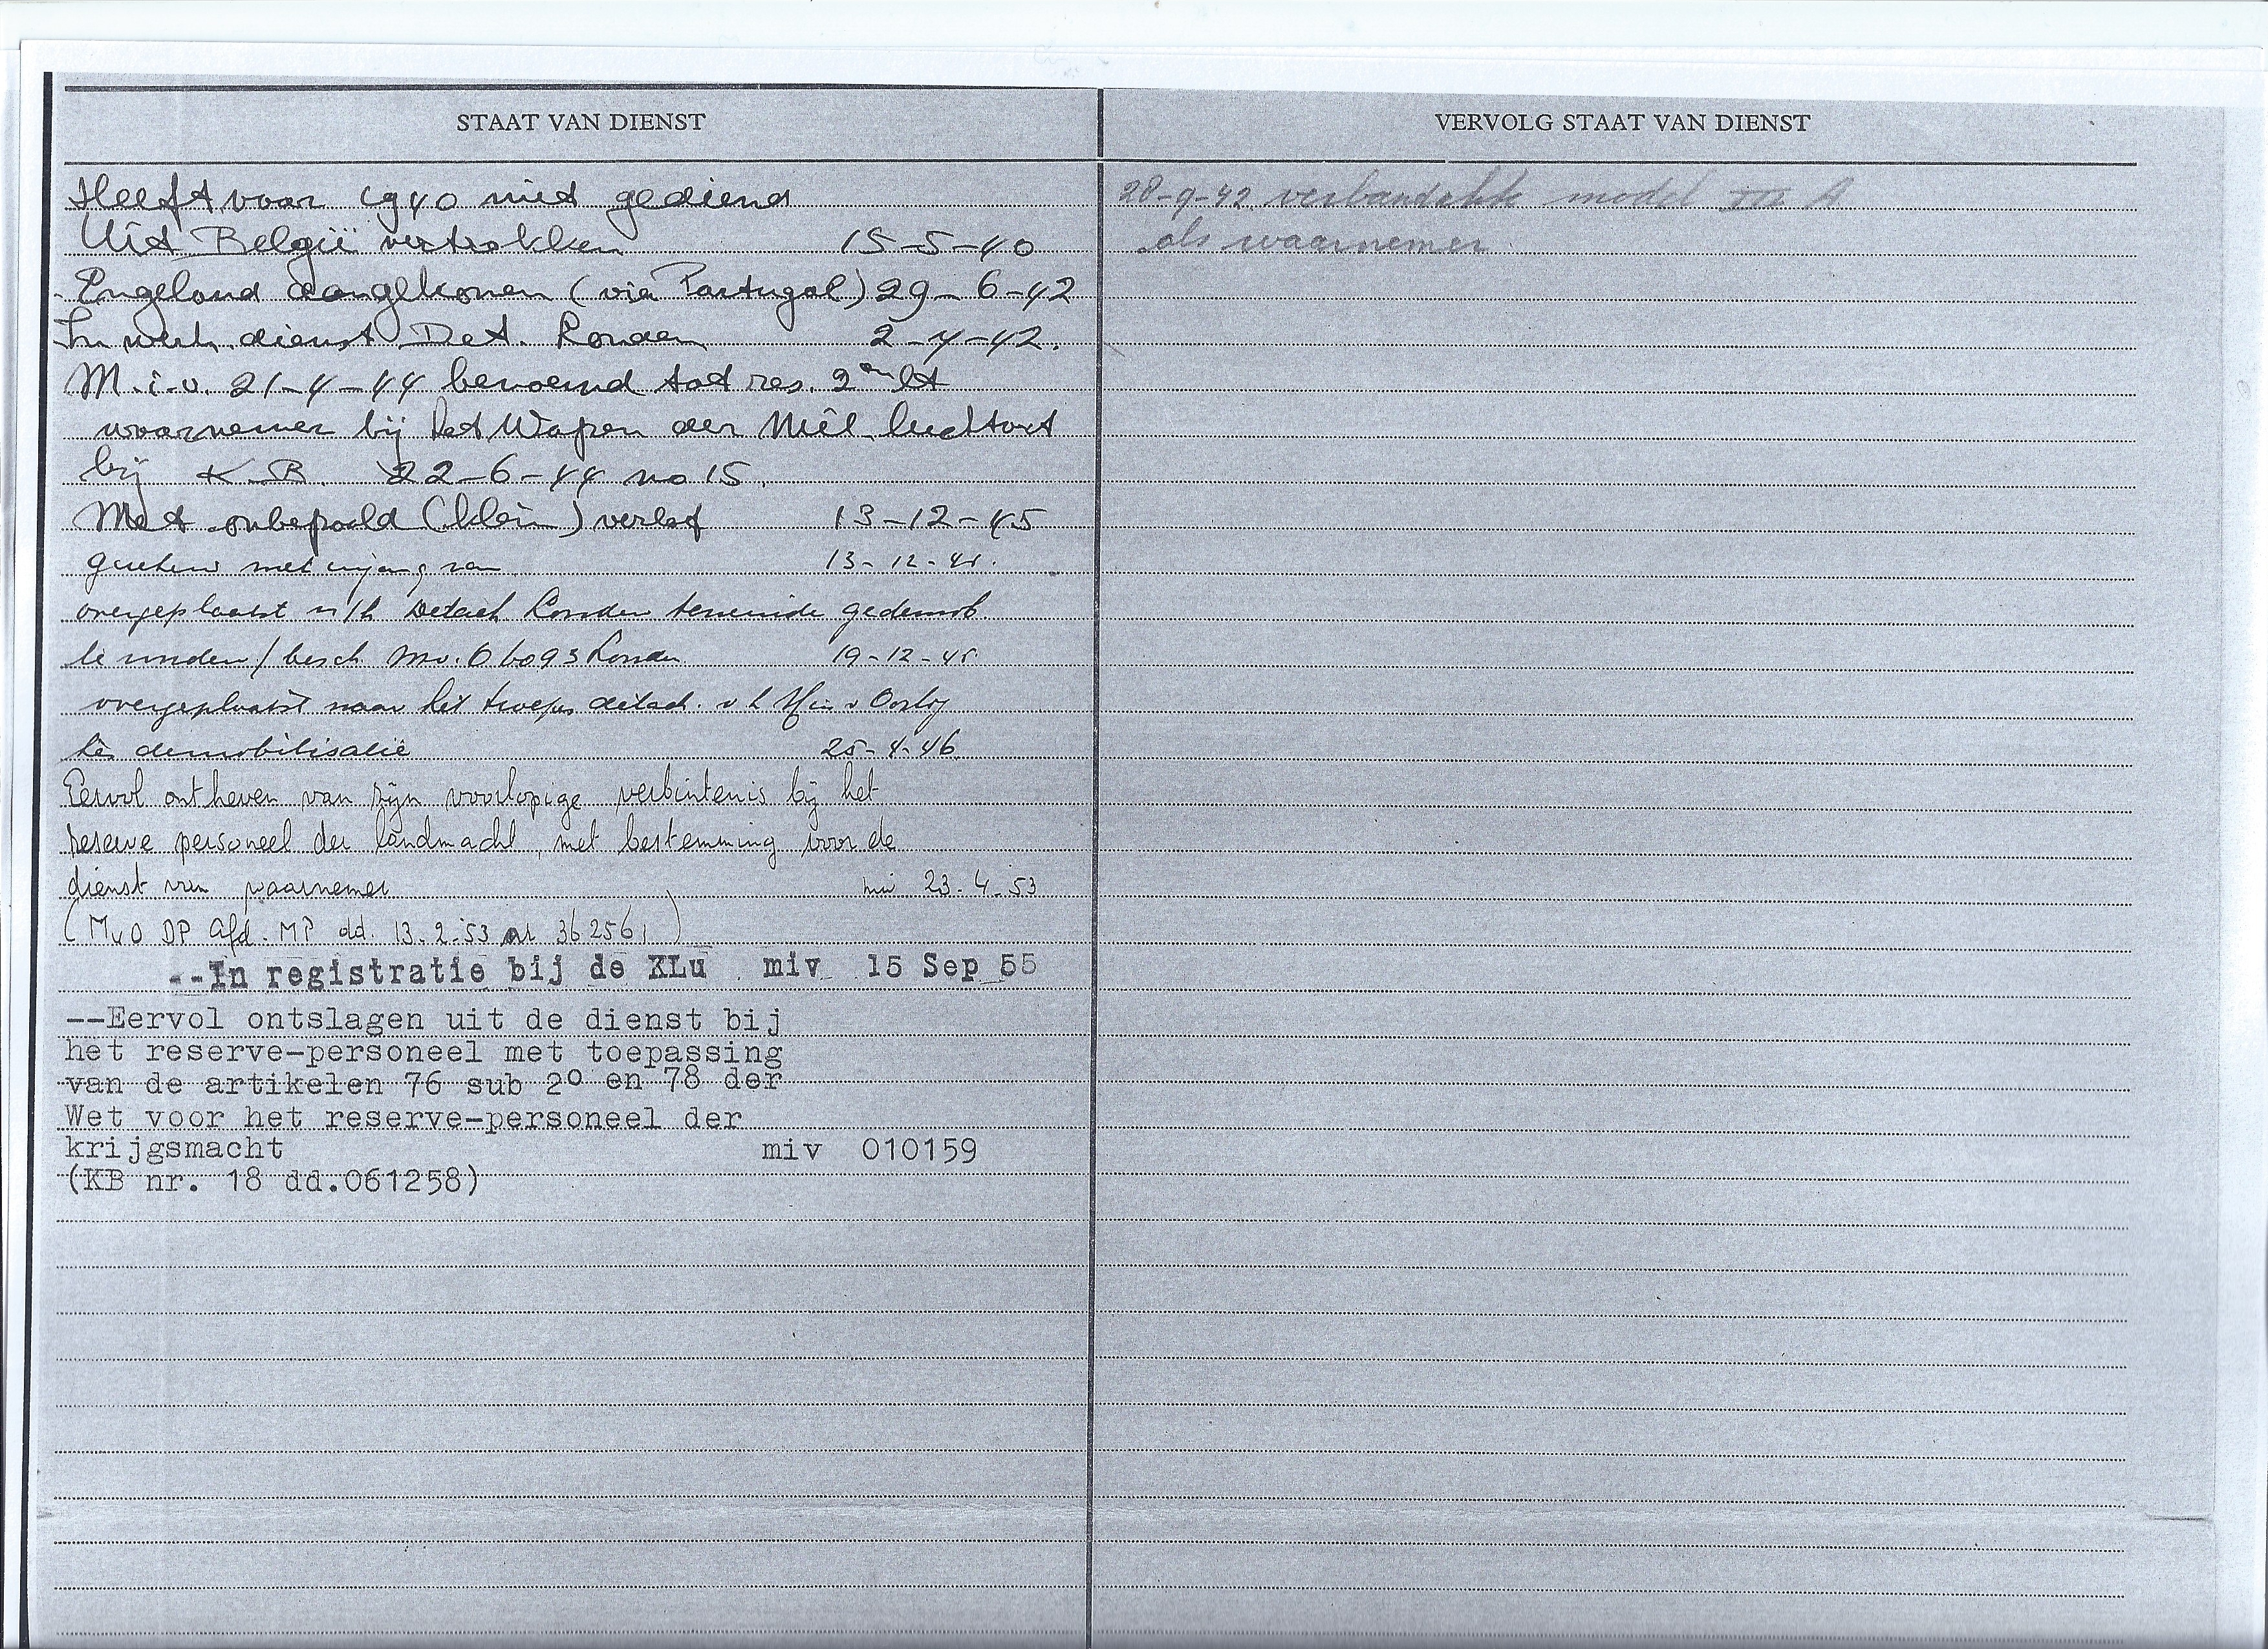 STAAT VAN DIENST
Heeft voor 1940 niet gediend
Uit België vertrokken 15-5-40
Engeland aangekomen (via Portugal) 29-6-42
In werk. dienst Det. Londen 2-4-42.
M.i.v. 21-4-44 benoemd tot res. 2en lt
waarnemer bij het Wapen der Mil. luchtvrt
bij K.B. 22-6-44 no 15.
Met onbepaald (klein) verlof 13-12-45
met ingang van 13-12-45.
overgeplaatst n/h Detach. Londen teneinde gedemob.
te worden / besch. Mv. O 6093 Londen 19-12-45.
overgeplaatst naar het troepen detach. v h Min v Oorlog
te demobilisatie 25-4-46
Eervol ontheven van zijn voorlopige verbintenis bij het
reserve personeel der landmacht, met bestemming voor de
dienst van waarnemer miv 23.4.53
(MvO DP Afd. MP dd. 13.2.53 nr 362561)
--In registratie bij de KLu miv 15 Sep 55
--Eervol ontslagen uit de dienst bij
het reserve-personeel met toepassing
van de artikelen 76 sub 2o en 78 der
Wet voor het reserve-personeel der
krijgsmacht miv 010159
(KB nr. 18 dd.061258)
VERVOLG STAAT VAN DIENST
28-9-42 verbandakte model III A
als waarnemer